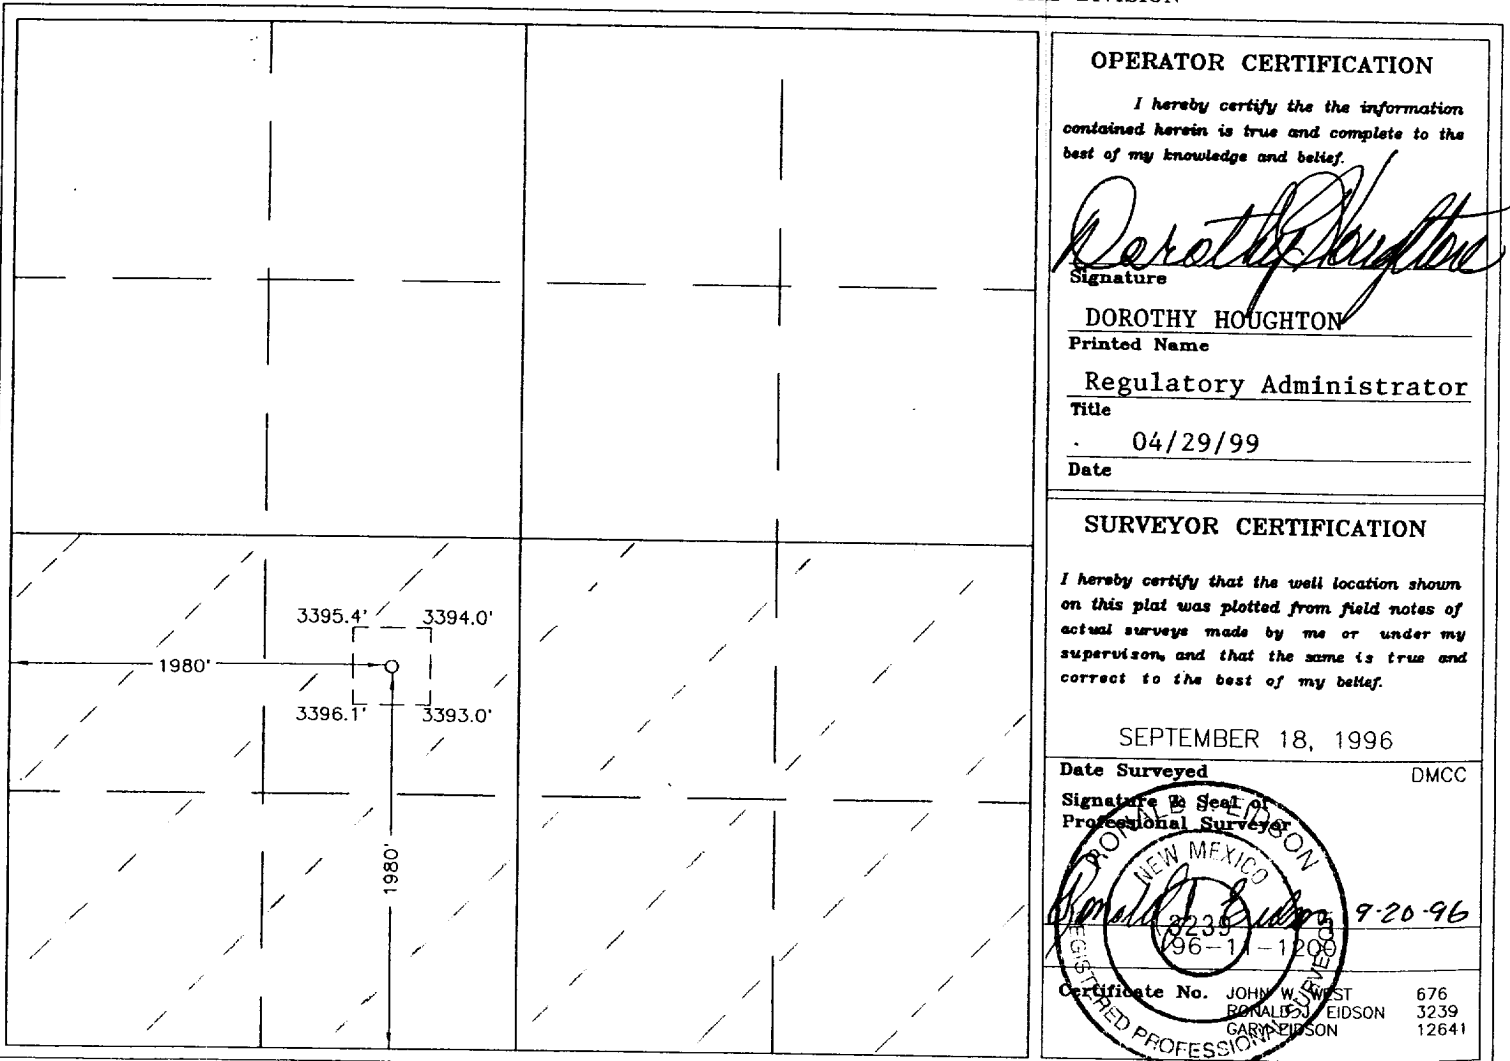 DIVISION
3395.4'
3394.0'
1980'
3396.1'
3393.0'
1980'
OPERATOR CERTIFICATION
I hereby certify the the information
contained herein is true and complete to the
best of my knowledge and belief.
Dorothy Houghton
Signature
DOROTHY HOUGHTON
Printed Name
Regulatory Administrator
Title
04/29/99
Date
SURVEYOR CERTIFICATION
I hereby certify that the well location shown
on this plat was plotted from field notes of
actual surveys made by me or under my
supervison, and that the same is true and
correct to the best of my belief.
SEPTEMBER 18, 1996
Date Surveyed DMCC
Signature & Seal of
Professional Surveyor
RONALD J. EIDSON
NEW MEXICO
Ronald J Eidson 9-20-96
3239
96-11-1200
REGISTERED PROFESSIONAL SURVEYOR
Certificate No. JOHN W. WEST 676
RONALD J. EIDSON 3239
GARY EIDSON 12641